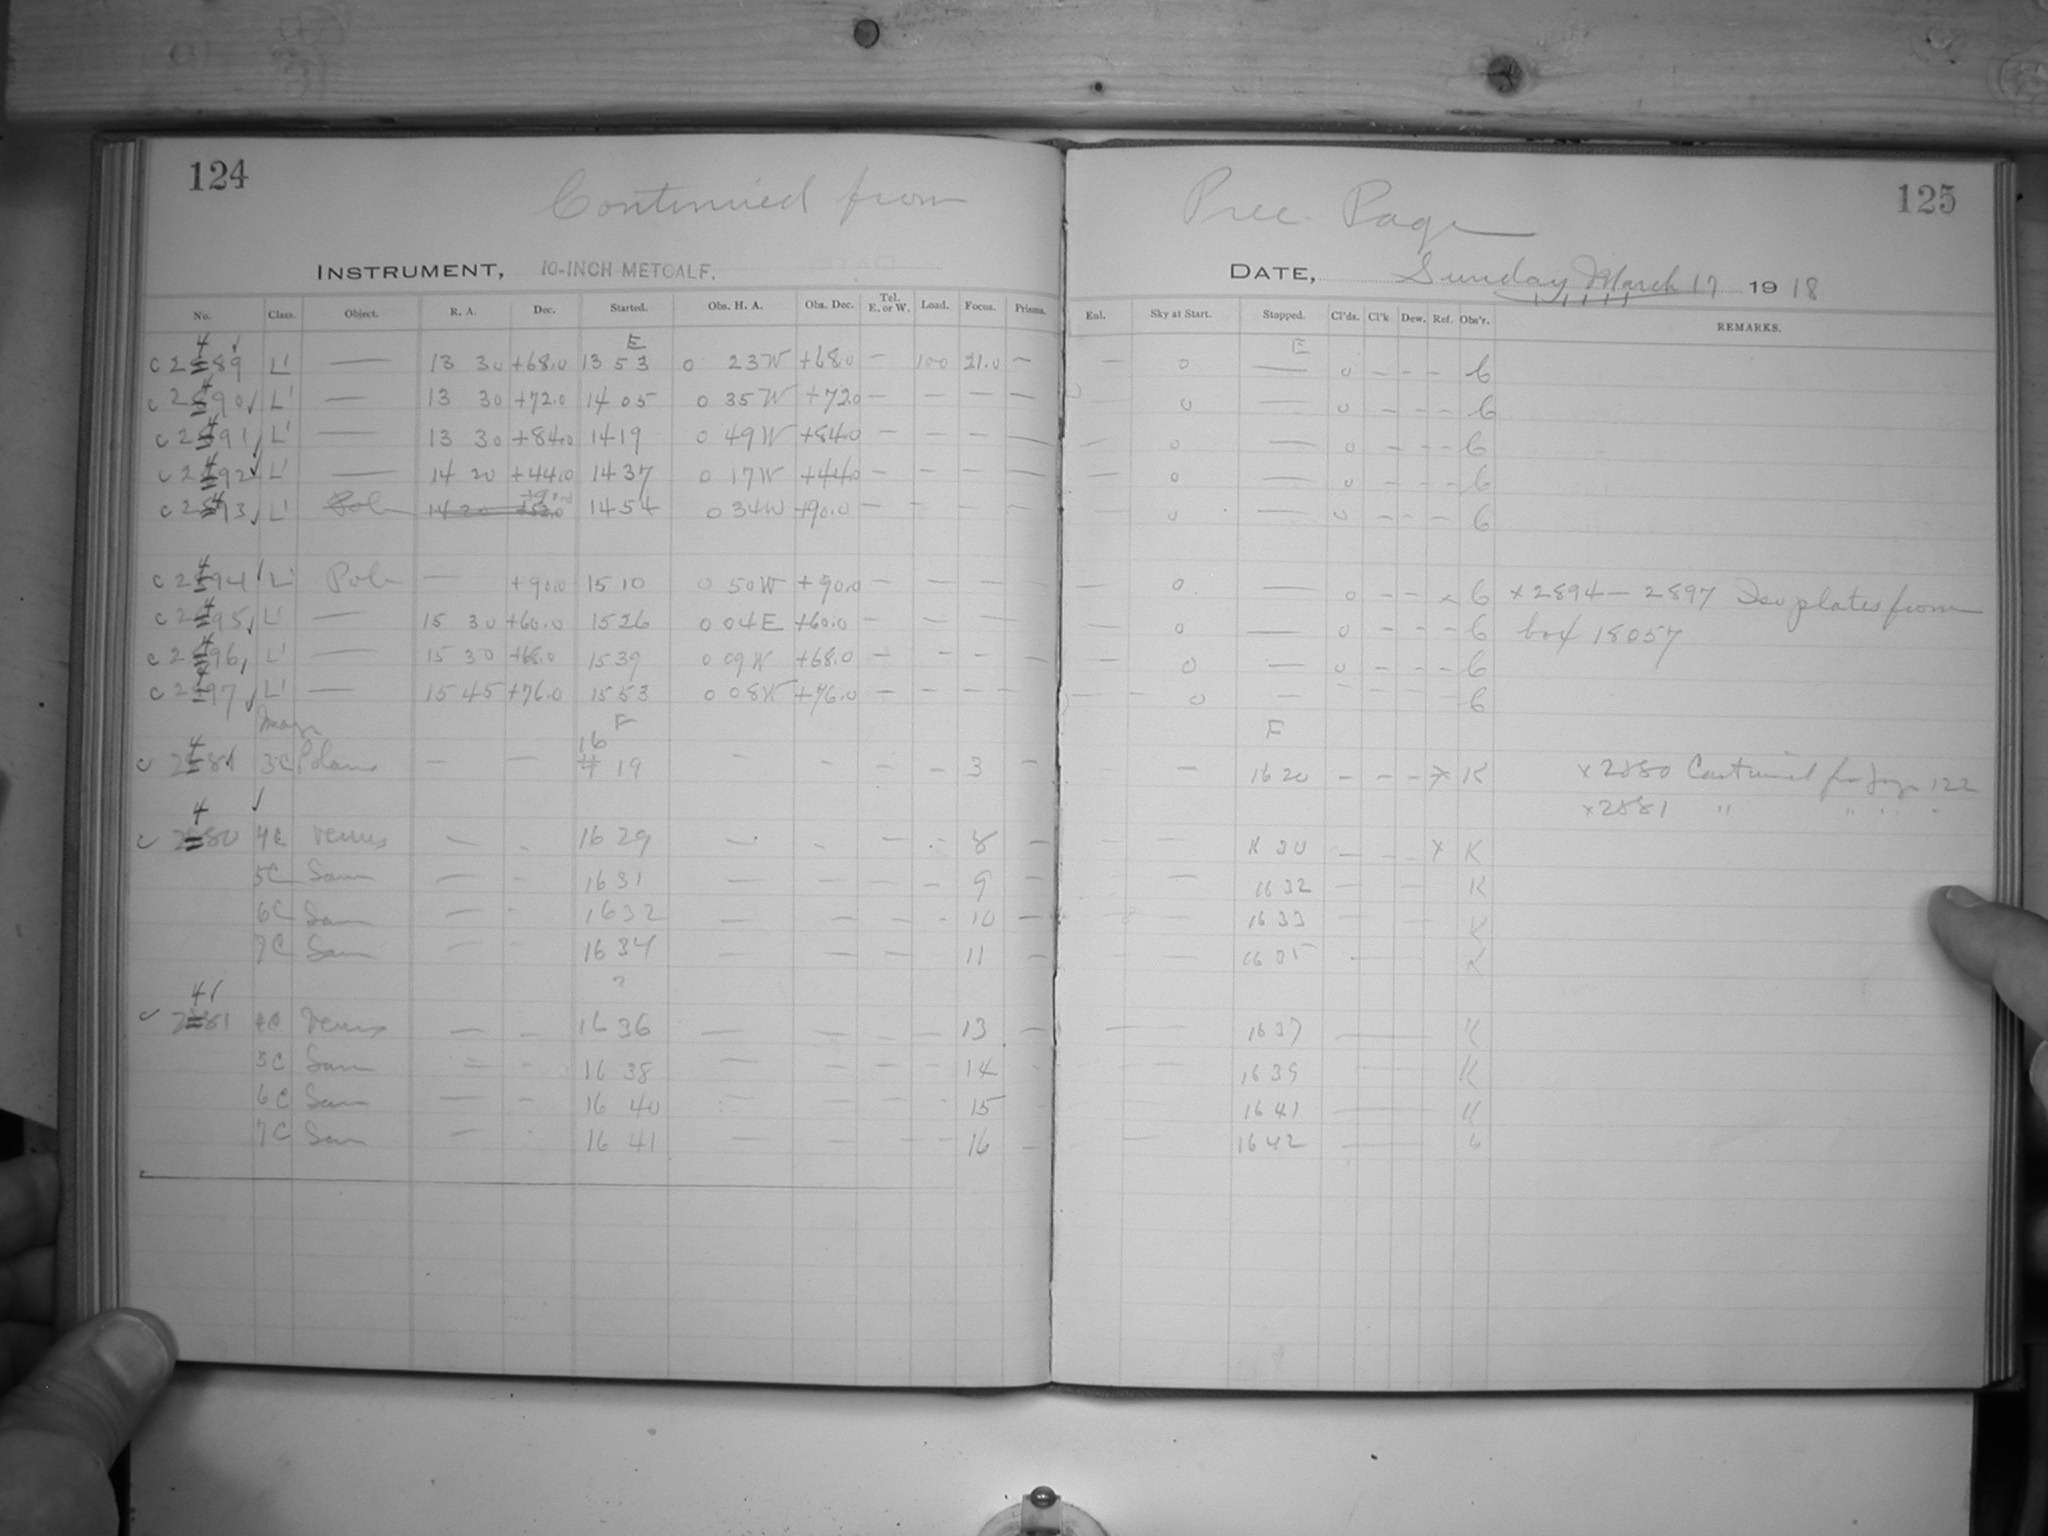 124
125
Continued from
Prec. Page
INSTRUMENT, 10-INCH METCALF.
DATE, Sunday March 17 1918
No. Class. Object. R. A. Dec. Started. Obs. H. A. Obs. Dec. Tel. E. or W. Load. Focus. Prisms. Enl. Sky at Start. Stopped. Cl'ds. Cl'k Dew. Ref. Obs'r. REMARKS.
E E
4
c 2889 ✓ L' — 13 30 +68.0 13 53 0 23W +68.0 — 100 21.0 — — 0 — 0 - - - 6
4
c 2890 ✓ L' — 13 30 +72.0 14 05 0 35W +72.0 — — — — — 0 — 0 - - - 6
4
c 2891 ✓ L' — 13 30 +84.0 14 19 0 49W +84.0 — — — — — 0 — 0 - - - 6
4
c 2892 ✓ L' — 14 20 +44.0 14 37 0 17W +44.0 — — — — — 0 — 0 - - - 6
+90.0
4
c 2893 ✓ L' Pole 14 20 14 54 0 34W +90.0 — — — — 0 — 0 - - - 6
4
c 2894 ✓ L' Pole — +90.0 15 10 0 50W +90.0 — — — — — 0 — 0 - - x 6 x 2894 — 2897 Iso plates from
4
c 2895 ✓ L' — 15 30 +60.0 15 26 0 04E +60.0 — — — — — 0 — 0 - - - 6 box 18057
4
c 2896 L' — 15 30 +68.0 15 39 0 09W +68.0 — — — — — 0 — 0 - - - 6
4
c 2897 ✓ L' — 15 45 +76.0 15 53 0 08W +76.0 — — — — — 0 — - - - - 6
F F
16
4
c 2881 3C Polaris — — 19 — — — — 3 — — 16 20 - - - x K x 2880 Continued 122
x 2881 " " " "
4 ✓
c 2880 4C Venus — - 16 29 — - — - 8 — — — 30 — - - x K
5C Sam — - 16 31 — — — - 9 — — 16 32 — — K
6C Sam — - 16 32 — — — - 10 — — 16 33 — — K
7C Sam — - 16 34 — — — - 11 — — — K
?
4 ✓
c 2881 4C Venus — - 16 36 — - — - 13 — — 16 37 — K
5C Sam — - 16 38 — - — - 14 - 16 39 — K
6C Sam — - 16 40 — — — - 15 - 16 41 — K
7C Sam — - 16 41 — - — - 16 — — 16 42 —